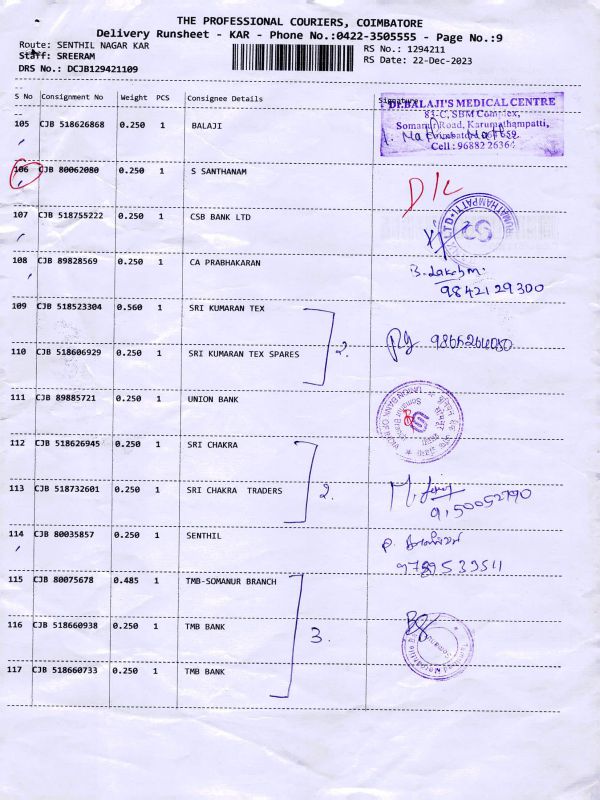 THE PROFESSIONAL COURIERS, COIMBATORE
Delivery Runsheet - KAR - Phone No.:0422-3505555 - Page No.:9
Route: SENTHIL NAGAR KAR
RS No.: 1294211
Staff: SREERAM
RS Date: 22-Dec-2023
DRS No.: DCJB129421109
S No Consignment No Weight PCS Consignee Details Signature
105 CJB 518626868 0.250 1 BALAJI
Dr.BALAJI'S MEDICAL CENTRE
83-C, SBM Complex,
Somanur Road, Karumathampatti,
Cell : 96882 26364
106 CJB 80062080 0.250 1 S SANTHANAM D/L
107 CJB 518755222 0.250 1 CSB BANK LTD
108 CJB 89828569 0.250 1 CA PRABHAKARAN
9842129300
109 CJB 518523304 0.560 1 SRI KUMARAN TEX
2.
110 CJB 518606929 0.250 1 SRI KUMARAN TEX SPARES
111 CJB 89885721 0.250 1 UNION BANK
112 CJB 518626945 0.250 1 SRI CHAKRA
2.
113 CJB 518732601 0.250 1 SRI CHAKRA TRADERS
9150052790
114 CJB 80035857 0.250 1 SENTHIL
115 CJB 80075678 0.485 1 TMB-SOMANUR BRANCH
116 CJB 518660938 0.250 1 TMB BANK
3.
117 CJB 518660733 0.250 1 TMB BANK